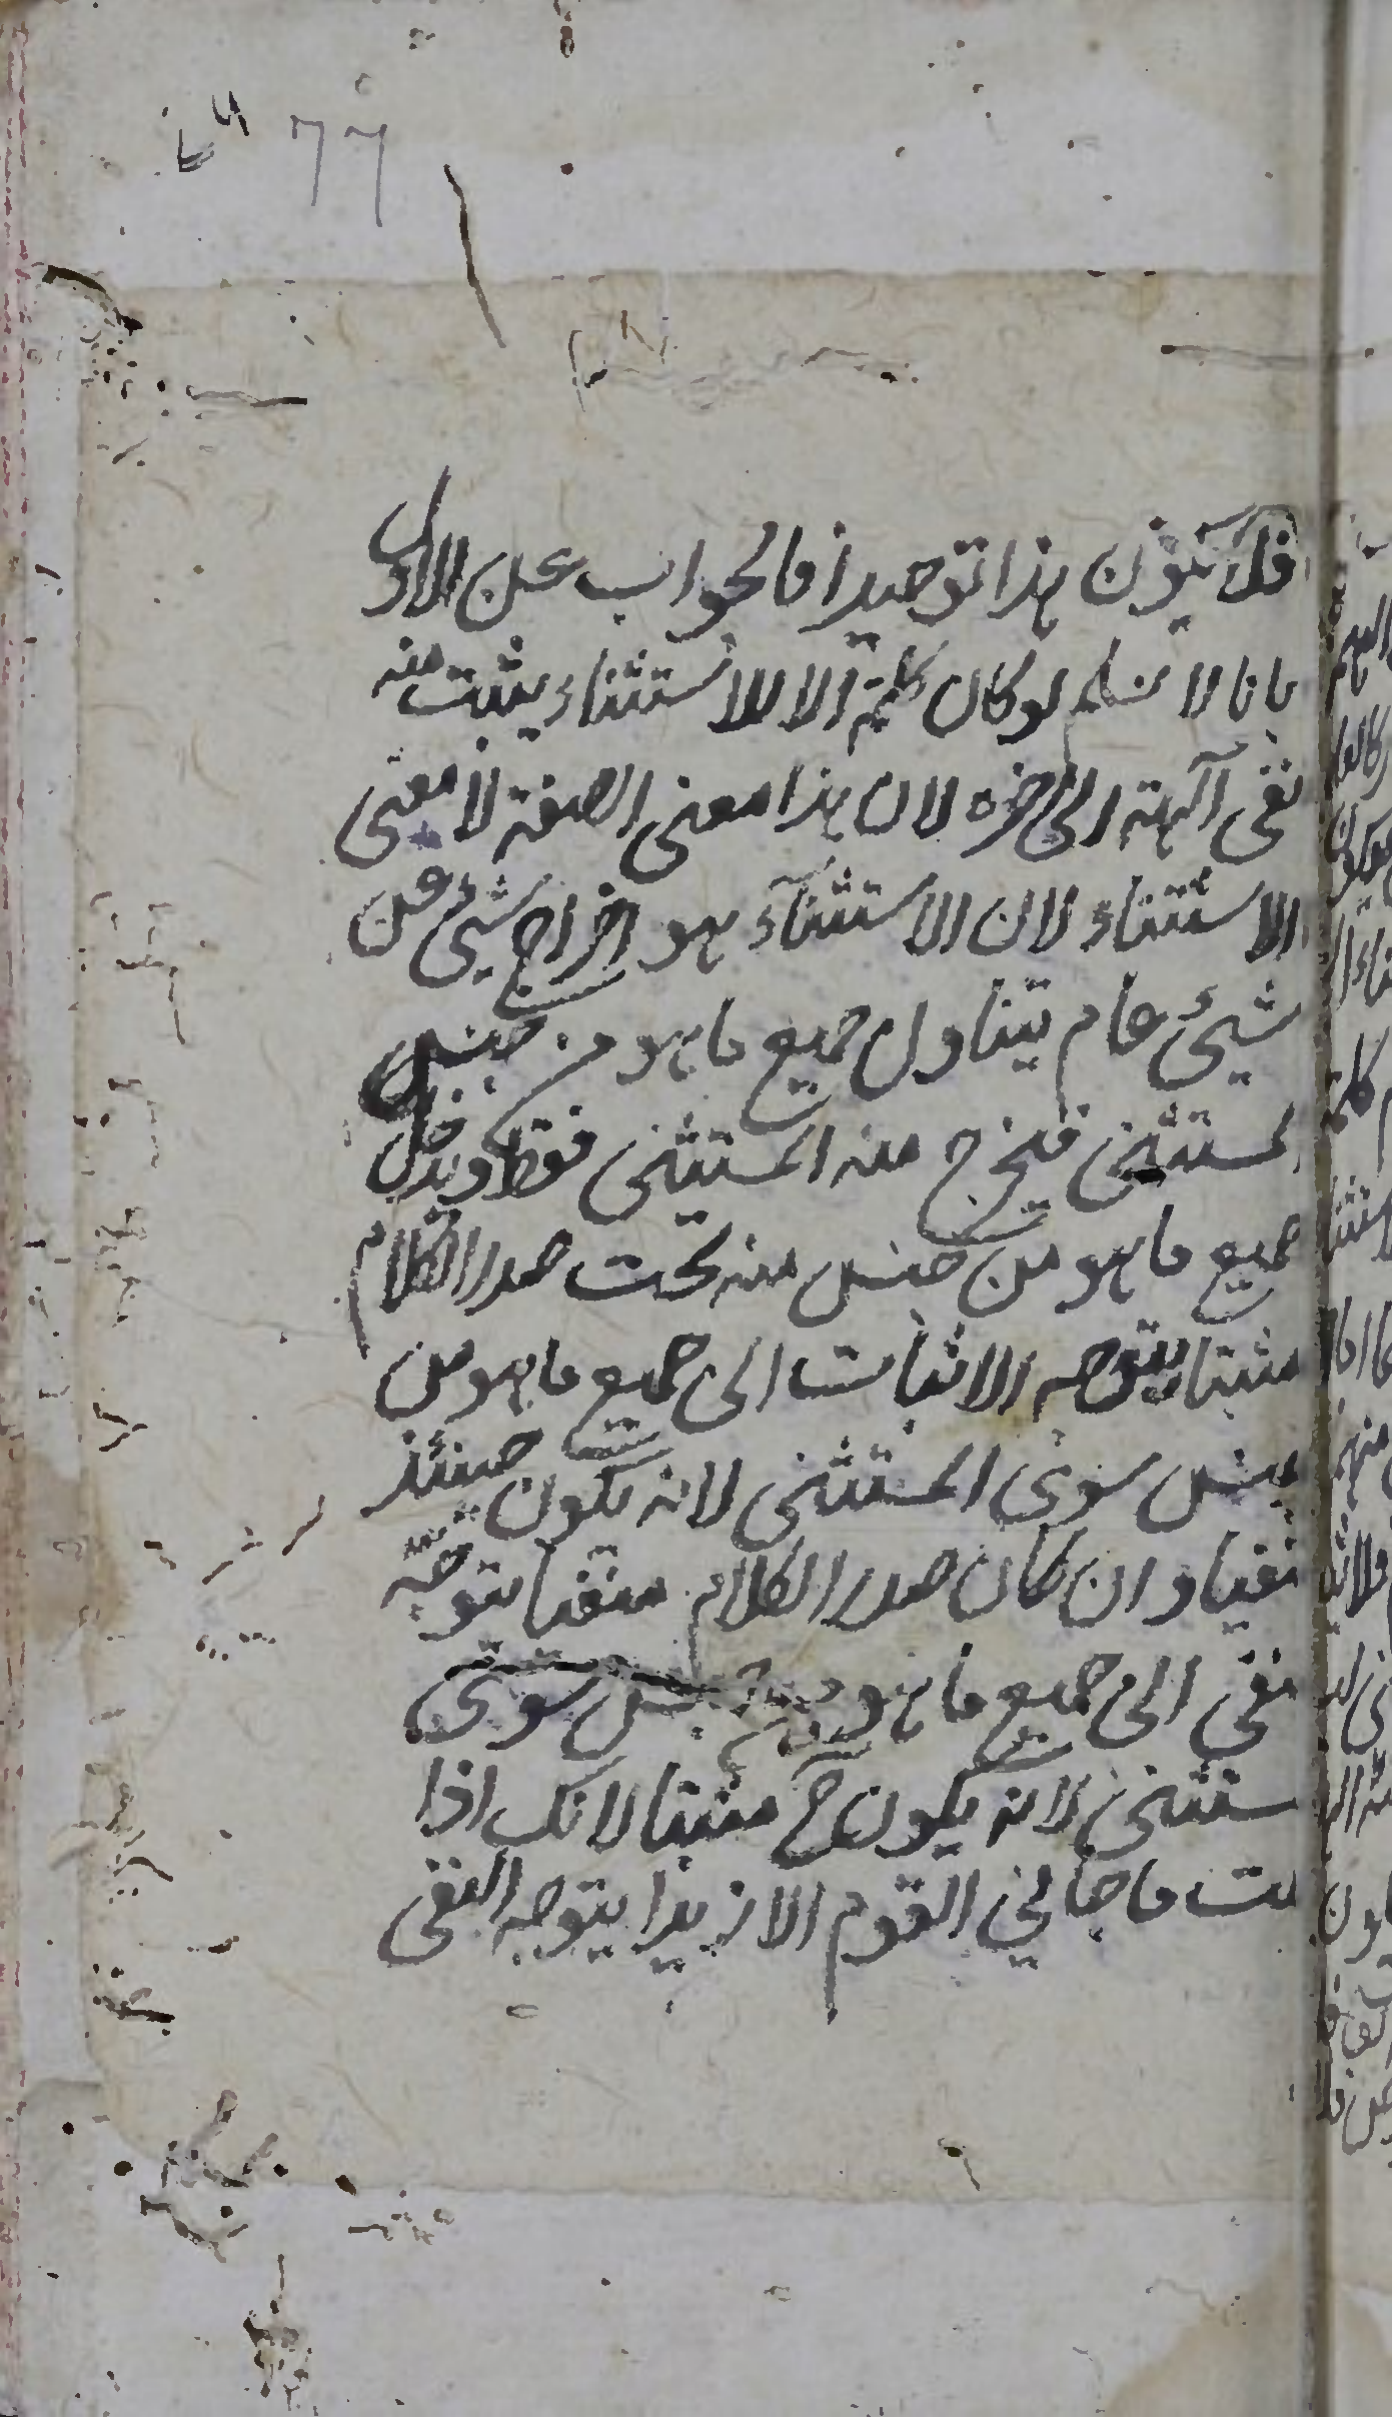 ٦٦
فلا يكون هذا توحيدا فالجواب عن الاول
بانا لا نسلم لو كان كلمة الا للاستثناء يثبت منه
نفى آلهة الى اخره لان هذا معنى الصفة لا معنى
الاستثناء لان الاستثنآء هو اخراج شئ عن
شئ عام يتناول جميع ما هو من جنس
المستثنى فيخرج منه المستثنى فقط ويدخل
جميع ما هو من جنس منه تحت صدر الكلام
مثبتا يتوجه الاثبات الى جميع ما هو من
جنس سوى المستثنى لانه يكون حينئذ
نفيا وان كان صدر الكلام منفيا يتوجه
نفى الى جميع ما هو جنس سوى
ستثنى لانه يكون ح مثبتا لانك اذا
لت ما جاني القوم الا زيدا يتوجه النفى